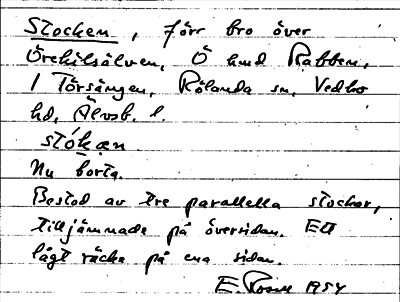 Stocken, förr bro över
Örekilsälven, Ö hmd Rabben,
i Torsängen, Rölanda sn, Vedbo
hd, Älvsb. l.
stókæn.
Nu borta.
Bestod av tre parallella stockar,
tilljämnade på översidan. Ett
lågt räcke på ena sidan.
E. 1954